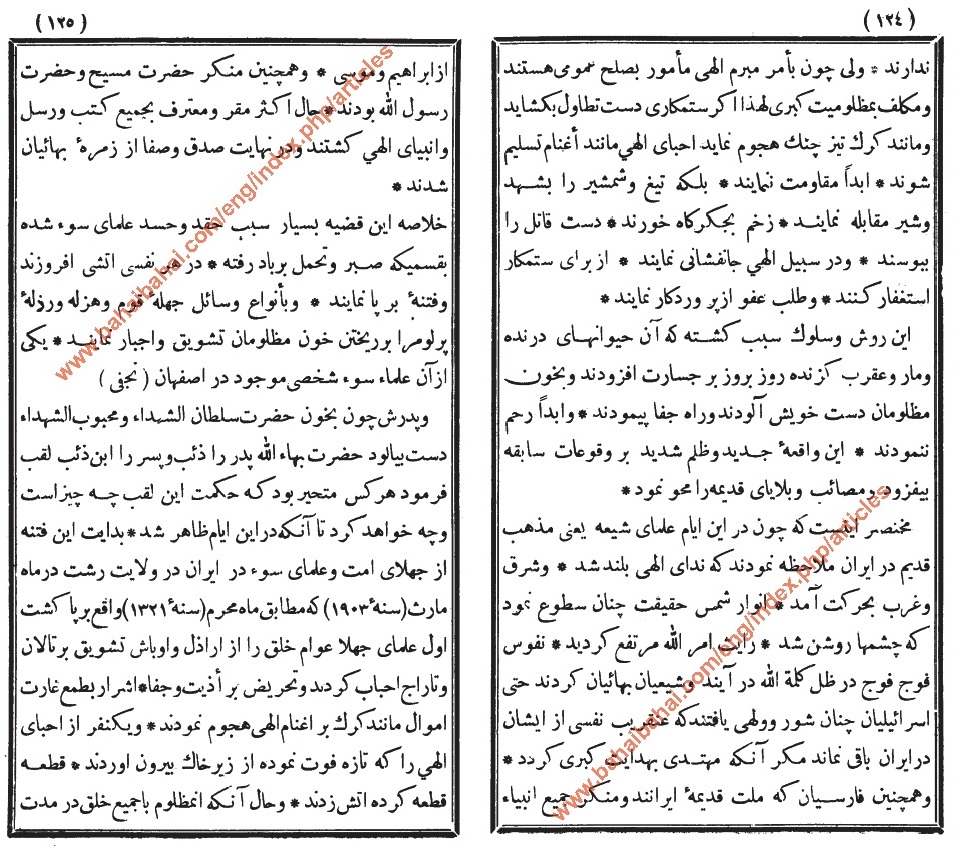 (١٢٤)
ندارند * ولی چون بأمر مبرم الهی مأمور بصلح عمومی هستند
ومكلف بمظلوميت كبری لهذا اكر ستمكاری دست تطاول بكشايد
ومانند كرك تيز چنك هجوم نمايد احبای الهي مانند أغنام تسليم
شوند * ابداً مقاومت ننمايند * بلكه تيغ وشمشير را بشهد
وشير مقابله نمايند * زخم بجكركاه خورند * دست قاتل را
ببوسند * ودر سبيل الهي جانفشانی نمايند * از برای ستمكار
استغفار كنند * وطلب عفو از پروردكار نمايند *
اين روش وسلوك سبب كشته كه آن حيوانهای درنده
ومار وعقرب كزنده روز بروز بر جسارت افزودند وبخون
مظلومان دست خويش آلودند وراه جفا پيمودند * وابداً رحم
ننمودند * اين واقعهٔ جديد وظلم شديد بر وقوعات سابقه
بيفزود ومصائب وبلايای قديمه را محو نمود *
مختصر اينست كه چون در اين ايام علمای شيعه يعنی مذهب
قديم در ايران ملاحظه نمودند كه ندای الهی بلند شد * وشرق
وغرب بحركت آمد * انوار شمس حقيقت چنان سطوع نمود
كه چشمها روشن شد * رايت امر الله مرتفع كرديد * نفوس
فوج فوج در ظل كلمة الله در آيند وشيعيان بهائيان كردند حتی
اسرائيليان چنان شور وولهی يافتند كه عنقريب نفسی از ايشان
در ايران باقی نماند مكر آنكه مهتدی بهدايت كبری كردد *
وهمچنين فارسيان كه ملت قديمهٔ ايرانند ومنكر جميع انبياء
www.bahaibahai.com/eng/index.php/articles
(١٢٥)
از ابراهيم وموسی * وهمچنين منكر حضرت مسيح وحضرت
رسول الله بودند * حال اكثر مقر ومعترف بجميع كتب ورسل
وانبيای الهي كشتند ودر نهايت صدق وصفا از زمرهٔ بهائيان
شدند *
خلاصه اين قضيه بسيار سبب حقد وحسد علمای سوء شده
بقسميكه صبر وتحمل بر باد رفته * در هر نفسی اتشی افروزند
وفتنهٔ بر پا نمايند * وبأنواع وسائل جهلهٔ قوم وهزله ورزلهٔ
پرلومرا بر ريختن خون مظلومان تشويق واجبار نمايند * يكی
از آن علماء سوء شخصی موجود در اصفهان (نجفی)
وپدرش چون بخون حضرت سلطان الشهداء ومحبوب الشهداء
دست بيالود حضرت بهاء الله پدر را ذئب وپسر را ابن ذئب لقب
فرمود هركس متحير بود كه حكمت اين لقب چه چيز است
وچه خواهد كرد تا آنكه در اين ايام ظاهر شد * بدايت اين فتنه
از جهلای امت وعلمای سوء در ايران در ولايت رشت در ماه
مارث (سنهٔ ١٩٠٣) كه مطابق ماه محرم (سنهٔ ١٣٢١) واقع بر پا كشت
اول علمای جهلا عوام خلق را از اراذل واوباش تشويق بر تالان
وتاراج احباب كردند وتحريض بر أذيت وجفا * اشرار بطمع غارت
اموال مانند كرك بر اغنام الهی هجوم نمودند * ويكنفر از احبای
الهي را كه تازه فوت نموده از زير خاك بيرون اوردند * قطعه
قطعه كرده اتش زدند * وحال آنكه انمظلوم با جميع خلق در مدت
www.bahaibahai.com/eng/index.php/articles